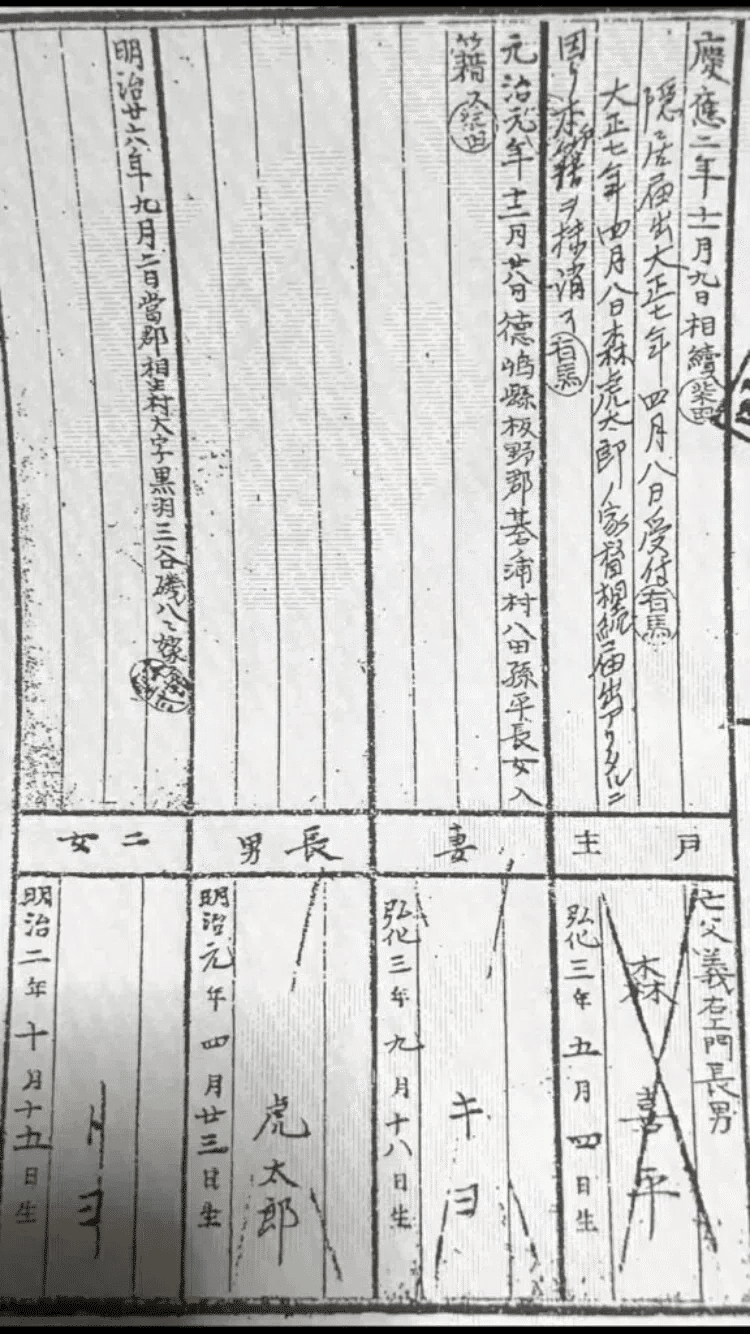 慶應二年十一月九日相續 柴田
隠居届出大正七年四月八日受付 有馬
大正七年四月八日森虎太郎ノ家督相続届出アリタルニ
因リ本戸籍ヲ抹消ス 有馬
戸主
亡父義右エ門長男
森喜平
弘化三年五月四日生
元治元年十二月廿八日徳嶋縣板野郡
村八田孫平長女入
籍ス 柴田
妻
キヨ
弘化三年九月十八日生
長男
虎太郎
明治元年四月廿三日生
明治廿六年九月二日當郡相生村大字黒羽三谷磯八ヘ嫁ス
二女
トヨ
明治二年十月十五日生